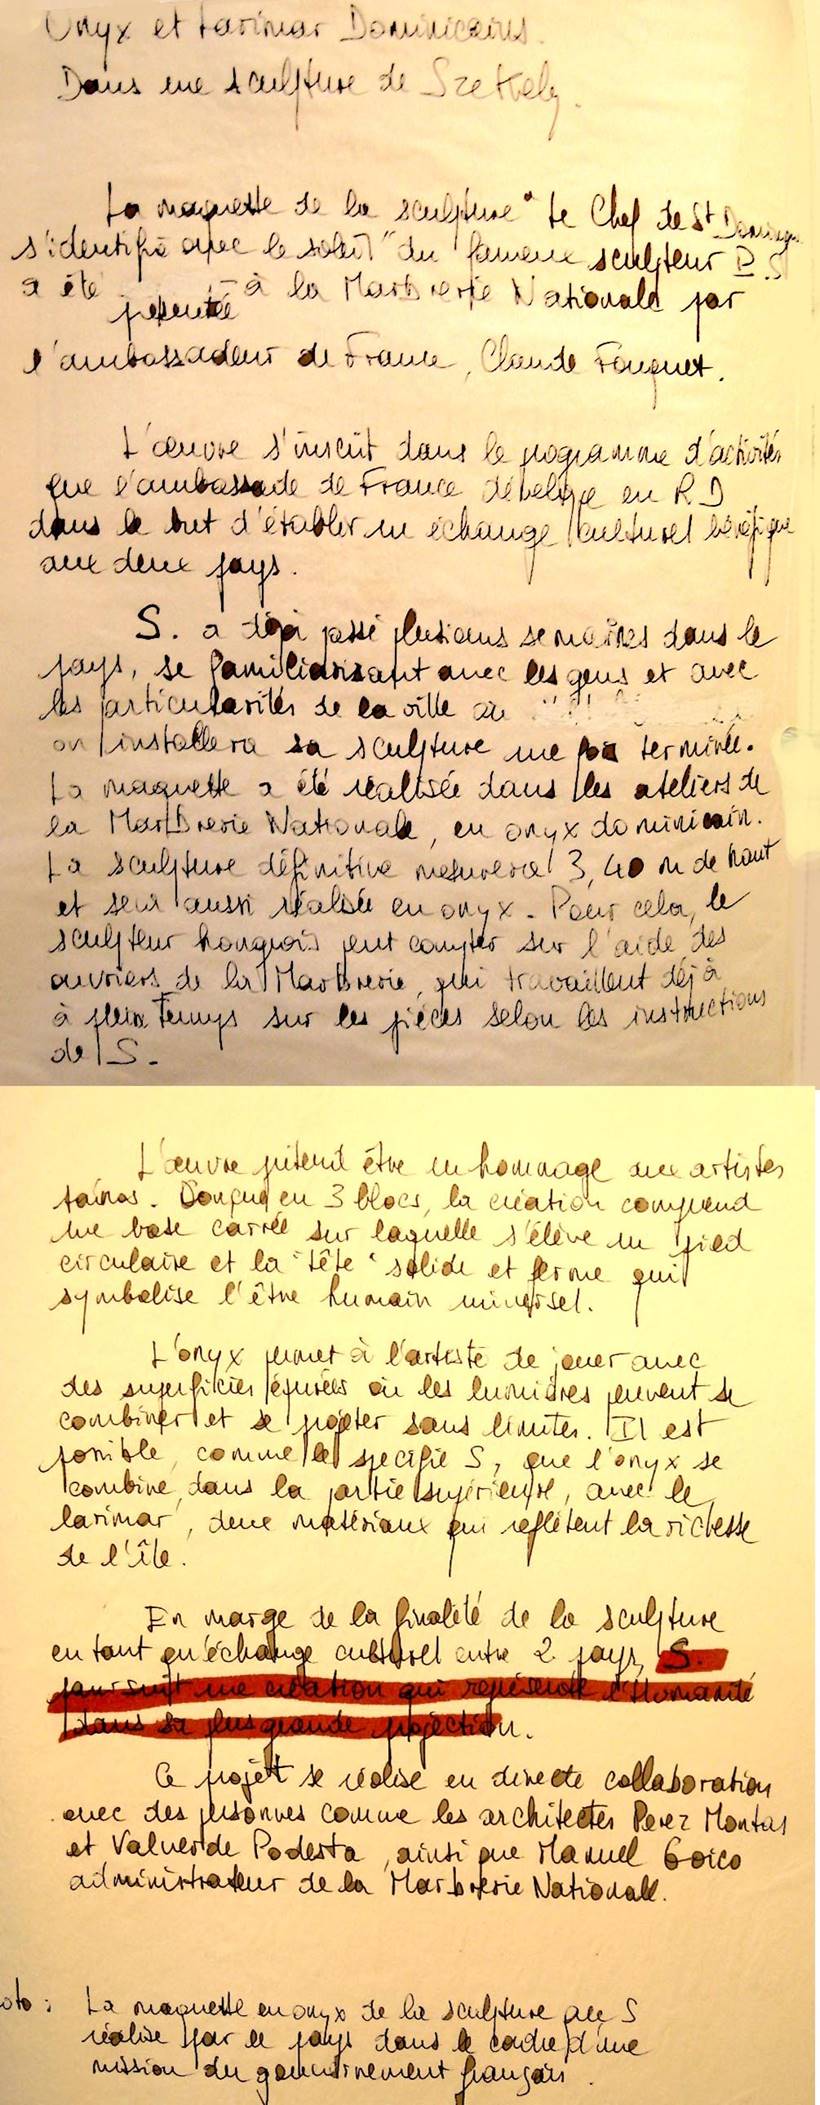 Onyx et Larimar Dominicains.
Dans une sculpture de Szekely.
La maquette de la sculpture "Le Chef de St Domingue
s'identifie avec le soleil" du fameux sculpteur P. S
a été à la Marbrerie Nationale par
présentée
l'ambassadeur de France, Claude Fouquet.
L'œuvre s'inscrit dans le programme d'activités
que l'ambassade de France développe en R D
dans le but d'établir un échange culturel bénéfique
aux deux pays.
S. a déjà passé plusieurs semaines dans le
pays, se familiarisant avec les gens et avec
les particularités de la ville où
on installera sa sculpture une fois terminée.
La maquette a été réalisée dans les ateliers de
la Marbrerie Nationale, en onyx dominicain.
La sculpture définitive mesurera 3,40 m de haut
et sera aussi réalisée en onyx. Pour cela, le
sculpteur hongrois peut compter sur l'aide des
ouvriers de la Marbrerie, qui travaillent déjà
à plein temps sur les pièces selon les instructions
de S.
L'œuvre prétend être un hommage aux artistes
taïnos. Conçue en 3 blocs, la création comprend
une base carrée sur laquelle s'élève un pied
circulaire et la "tête" solide et ferme qui
symbolise l'être humain universel.
L'onyx permet à l'artiste de jouer avec
des superficies épurées où les lumières peuvent se
combiner et se projeter sans limites. Il est
possible, comme le spécifie S, que l'onyx se
combine, dans la partie supérieure, avec le
larimar, deux matériaux qui reflètent la richesse
de l'île.
En marge de la finalité de la sculpture
en tant qu'échange culturel entre 2 pays, S.
poursuit une création qui représente l'Humanité
dans sa plus grande projection.
Ce projet se réalise en directe collaboration
avec des personnes comme les architectes Perez Montas
et Valverde Podesta, ainsi que Manuel Goico
administrateur de la Marbrerie Nationale.
oto : La maquette en onyx de la sculpture que S
réalise par le pays dans le cadre d'une
mission du gouvernement français.